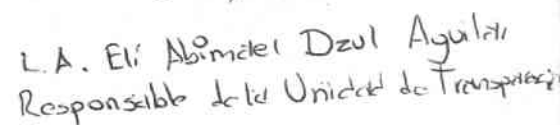 L.A. Elí Abimalel Dzul Aguilar
Responsable de la Unidad de Transparencia